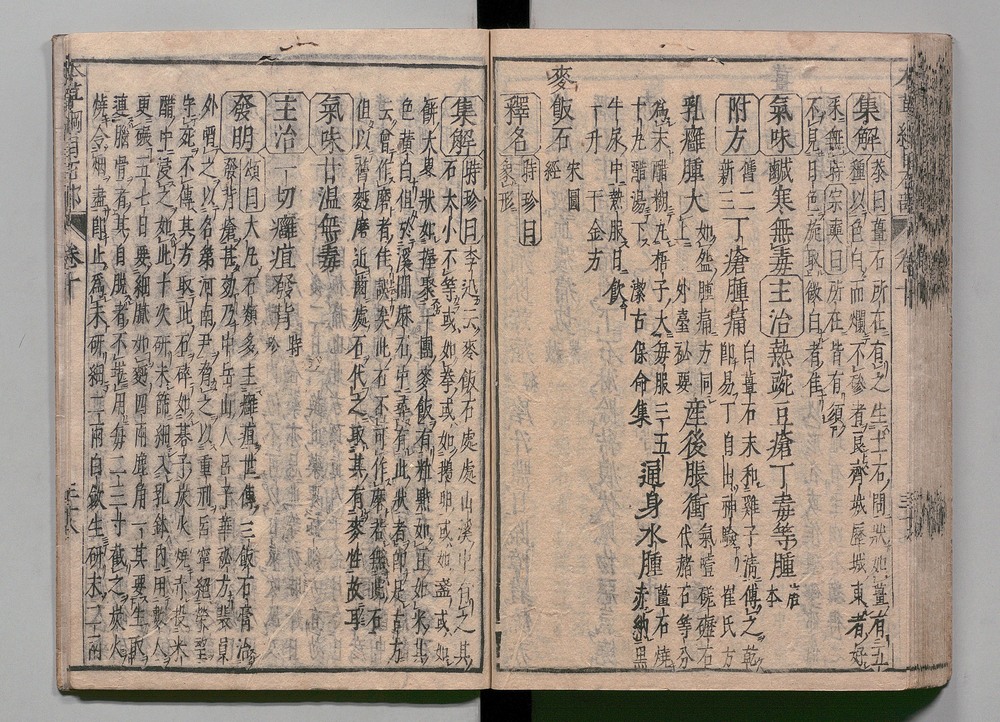 集解恭曰薑石所在有之生土石間狀如薑有五
種以色白而爛不磣者良齊城歷城東者好
采無時宗奭曰所在皆有須
不見日色旋取微白者佳
氣味鹹寒無毒主治熱豌豆瘡丁毒等腫唐本
附方舊二新三丁瘡腫痛白薑石末和雞子清傅之乾即易丁自出神驗崔氏方
乳癰腫大如盌腫痛方同上外臺祕要產後脹衝氣噎礓礰石代赭石等分
為末醋糊丸梧子大每服三五十丸醋湯下潔古保命集通身水腫薑石燒赤納黑
牛尿中熱服日飲一升千金方
麥飯石宋圖經
釋名時珍曰象形
集解時珍曰李迅云麥飯石處處山溪中有之其
石大小不等或如拳或如鵝卵或如盞或如
餅大畧狀如握聚一團麥飯有粒點如豆如米其
色黃白但於溪間麻石中尋有此狀者即是古方
云曾作磨者佳誤矣此石不可作磨若無此石
但以舊麪磨近齒處石代之取其有麥性故耳
氣味甘溫無毒
主治一切癰疽發背時珍
發明頌曰大凡石類多主癰疽世傳麥飯石膏治
發背瘡甚効乃中岳山人呂子華祕方裴員
外啗之以名第河南尹脅之以重刑呂寧絕榮望
守死不傳其方取此石碎如碁子炭火燒赤投米
醋中浸之如此十次研末篩細入乳鉢內用數人
更碾五七日要細膩如麪四兩鹿角一具要生取
連腦骨者其自脫者不堪用每二三寸截之炭火
燒令烟盡即止為末研細二兩白斂生研末二兩